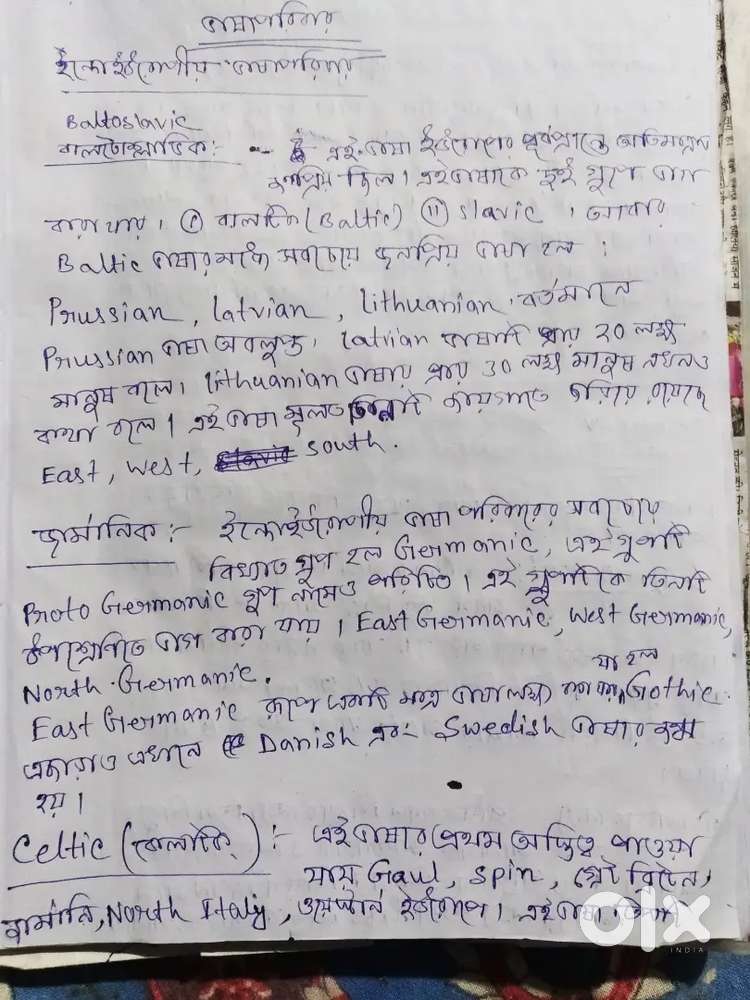 ভাষাপরিবার
ইন্দোইউরোপীয় ভাষাপরিবার
Baltoslavic
বালটোস্লাভিক :- এই ভাষা ইউরোপের পূর্বপ্রান্তে
জনপ্রিয় ছিল। এই ভাষাকে দুই গ্রুপে ভাগ
করা যায়। ⓘ বালটিক (Baltic) ⓘⓘ Slavic । আবার
Baltic ভাষার মধ্যে সবচেয়ে জনপ্রিয় ভাষা হল :
Prussian, Latvian, Lithuanian. বর্তমানে
Prussian ভাষা অবলুপ্ত। Latvian ভাষাটি প্রায় 20 লক্ষ
মানুষ বলে। Lithuanian ভাষায় প্রায় 30 লক্ষ মানুষ এখনও
কথা বলে। এই ভাষা মূলত তিনটি জায়গাতে ছড়িয়ে রয়েছে
East, West, South.
জার্মানিক :- ইন্দোইউরোপীয় ভাষা পরিবারের সবচেয়ে
বিখ্যাত গ্রুপ হল Germanic, এই গ্রুপটি
Proto Germanic গ্রুপ নামেও পরিচিত। এই গ্রুপটিকে তিনটি
উপশ্রেণিতে ভাগ করা যায়। East Germanic, West Germanic,
North Germanic.
যা হল
East Germanic গ্রুপে একটি মাত্র ভাষা লক্ষ্য করা যায় Gothic
এছাড়াও এখানে Danish এবং Swedish ভাষার জন্ম
হয়।
Celtic (কেলটিক) :- এই ভাষার প্রথম অস্তিত্ব পাওয়া
যায় Gaul, Spin, গ্রেট ব্রিটেন,
জার্মানি, North Italy, ওয়েস্টার্ন ইউরোপে। এই ভাষা
olx
INDIA